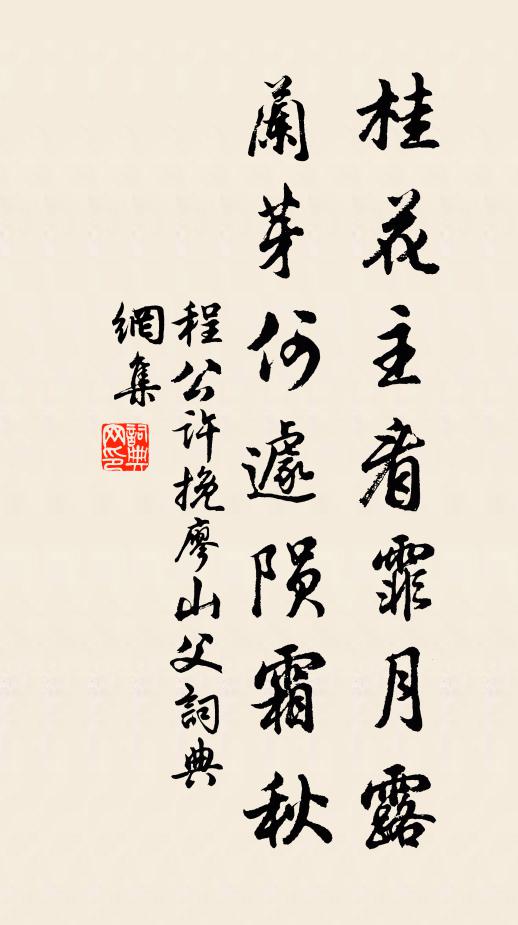 桂花主看霏月露
蘭芽何遽隕霜秋
程公许挽廖山父詞典
網集
詞典
网印